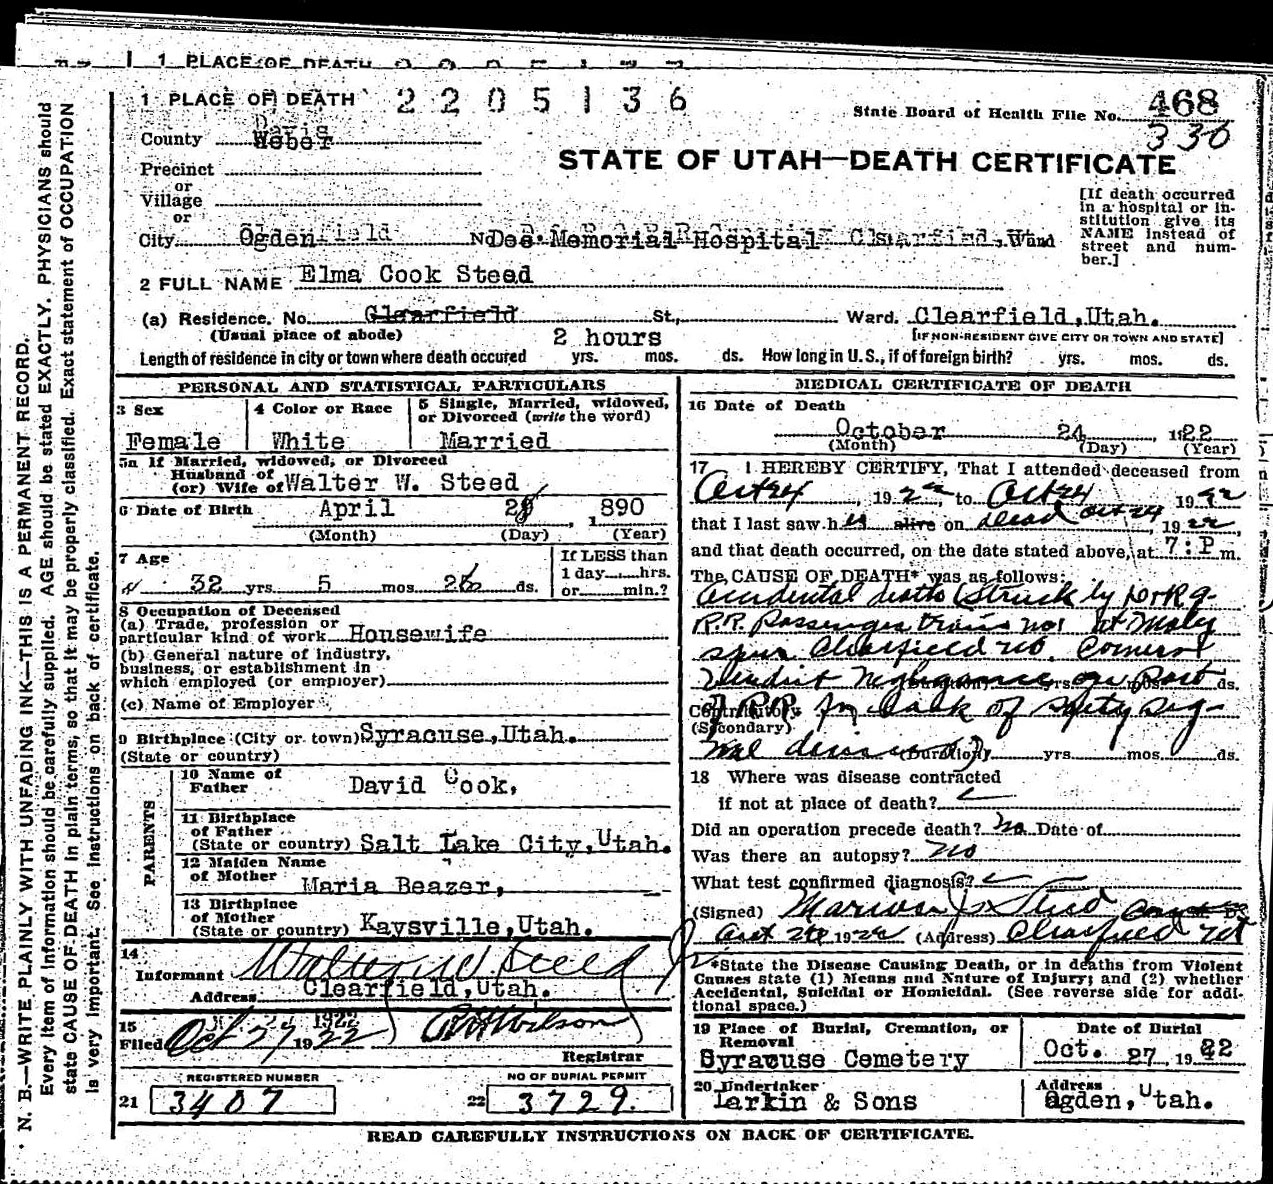 1 PLACE OF DEATH
1 PLACE OF DEATH 2205136
State Board of Health File No. 468
330
County Davis Weber
STATE OF UTAH—DEATH CERTIFICATE
Precinct
or
Village
or
City Ogden field No. Dee Memorial Hospital Clearfield, Ward
[If death occurred in a hospital or institution give its NAME instead of street and number.]
2 FULL NAME Elma Cook Steed
(a) Residence. No. Clearfield St., Ward. Clearfield, Utah.
(Usual place of abode) [IF NON-RESIDENT GIVE CITY OR TOWN AND STATE]
2 hours
Length of residence in city or town where death occured yrs. mos. ds. How long in U. S., if of foreign birth? yrs. mos. ds.
PERSONAL AND STATISTICAL PARTICULARS
3 Sex
Female
4 Color or Race
White
5 Single, Married, widowed, or Divorced (write the word)
Married
5a If Married, widowed, or Divorced
Husband of
(or) Wife of Walter W. Steed
6 Date of Birth April 2 , 1890
(Month) (Day) (Year)
7 Age
32 yrs. 5 mos. 26 ds.
If LESS than
1 day hrs.
or min.?
8 Occupation of Deceased
(a) Trade, profession or
particular kind of work Housewife
(b) General nature of industry,
business, or establishment in
which employed (or employer)
(c) Name of Employer
9 Birthplace (City or town) Syracuse, Utah.
(State or country)
PARENTS
10 Name of
Father David Cook.
11 Birthplace
of Father
(State or country) Salt Lake City, Utah.
12 Maiden Name
of Mother Maria Beazer,
13 Birthplace
of Mother
(State or country) Kaysville, Utah.
14
Informant Walter W Steed
Address Clearfield, Utah.
15
Filed Oct 27 1922 Wilson
Registrar
REGISTERED NUMBER
21 3407
NO OF BURIAL PERMIT
22 3729.
MEDICAL CERTIFICATE OF DEATH
16 Date of Death
October 24 , 1922
(Month) (Day) (Year)
17 I HEREBY CERTIFY, That I attended deceased from
Oct 24 , 1922 to Oct 24 1922
that I last saw her alive on dead Oct 24 1922,
and that death occurred, on the date stated above, at 7:P m.
The CAUSE OF DEATH* was as follows:
accidental death (Struck by D & R G
R.R. Passenger train no 1 at
spur Clearfield Ut. Coroners
Verdict Negligence on Part
(Duration) yrs. mos. ds.
Contributory of R.R. for lack of safety sig-
(Secondary)
nal devices) (Duration) yrs. mos. ds.
18 Where was disease contracted
if not at place of death?
Did an operation precede death? No Date of
Was there an autopsy? No
What test confirmed diagnosis?
(Signed) Marion Steed
Oct 26 1922 (Address) Clearfield Ut
*State the Disease Causing Death, or in deaths from Violent
Causes state (1) Means and Nature of Injury; and (2) whether
Accidental, Suicidal or Homicidal. (See reverse side for additional space.)
19 Place of Burial, Cremation, or
Removal
Syracuse Cemetery
Date of Burial
Oct. 27, 1922
20 Undertaker
Larkin & Sons
Address
Ogden, Utah.
READ CAREFULLY INSTRUCTIONS ON BACK OF CERTIFICATE.
N. B.—WRITE PLAINLY WITH UNFADING INK—THIS IS A PERMANENT RECORD.
Every item of information should be carefully supplied. AGE should be stated EXACTLY. PHYSICIANS should
state CAUSE OF DEATH in plain terms, so that it may be properly classified. Exact statement of OCCUPATION
is very important. See instructions on back of certificate.